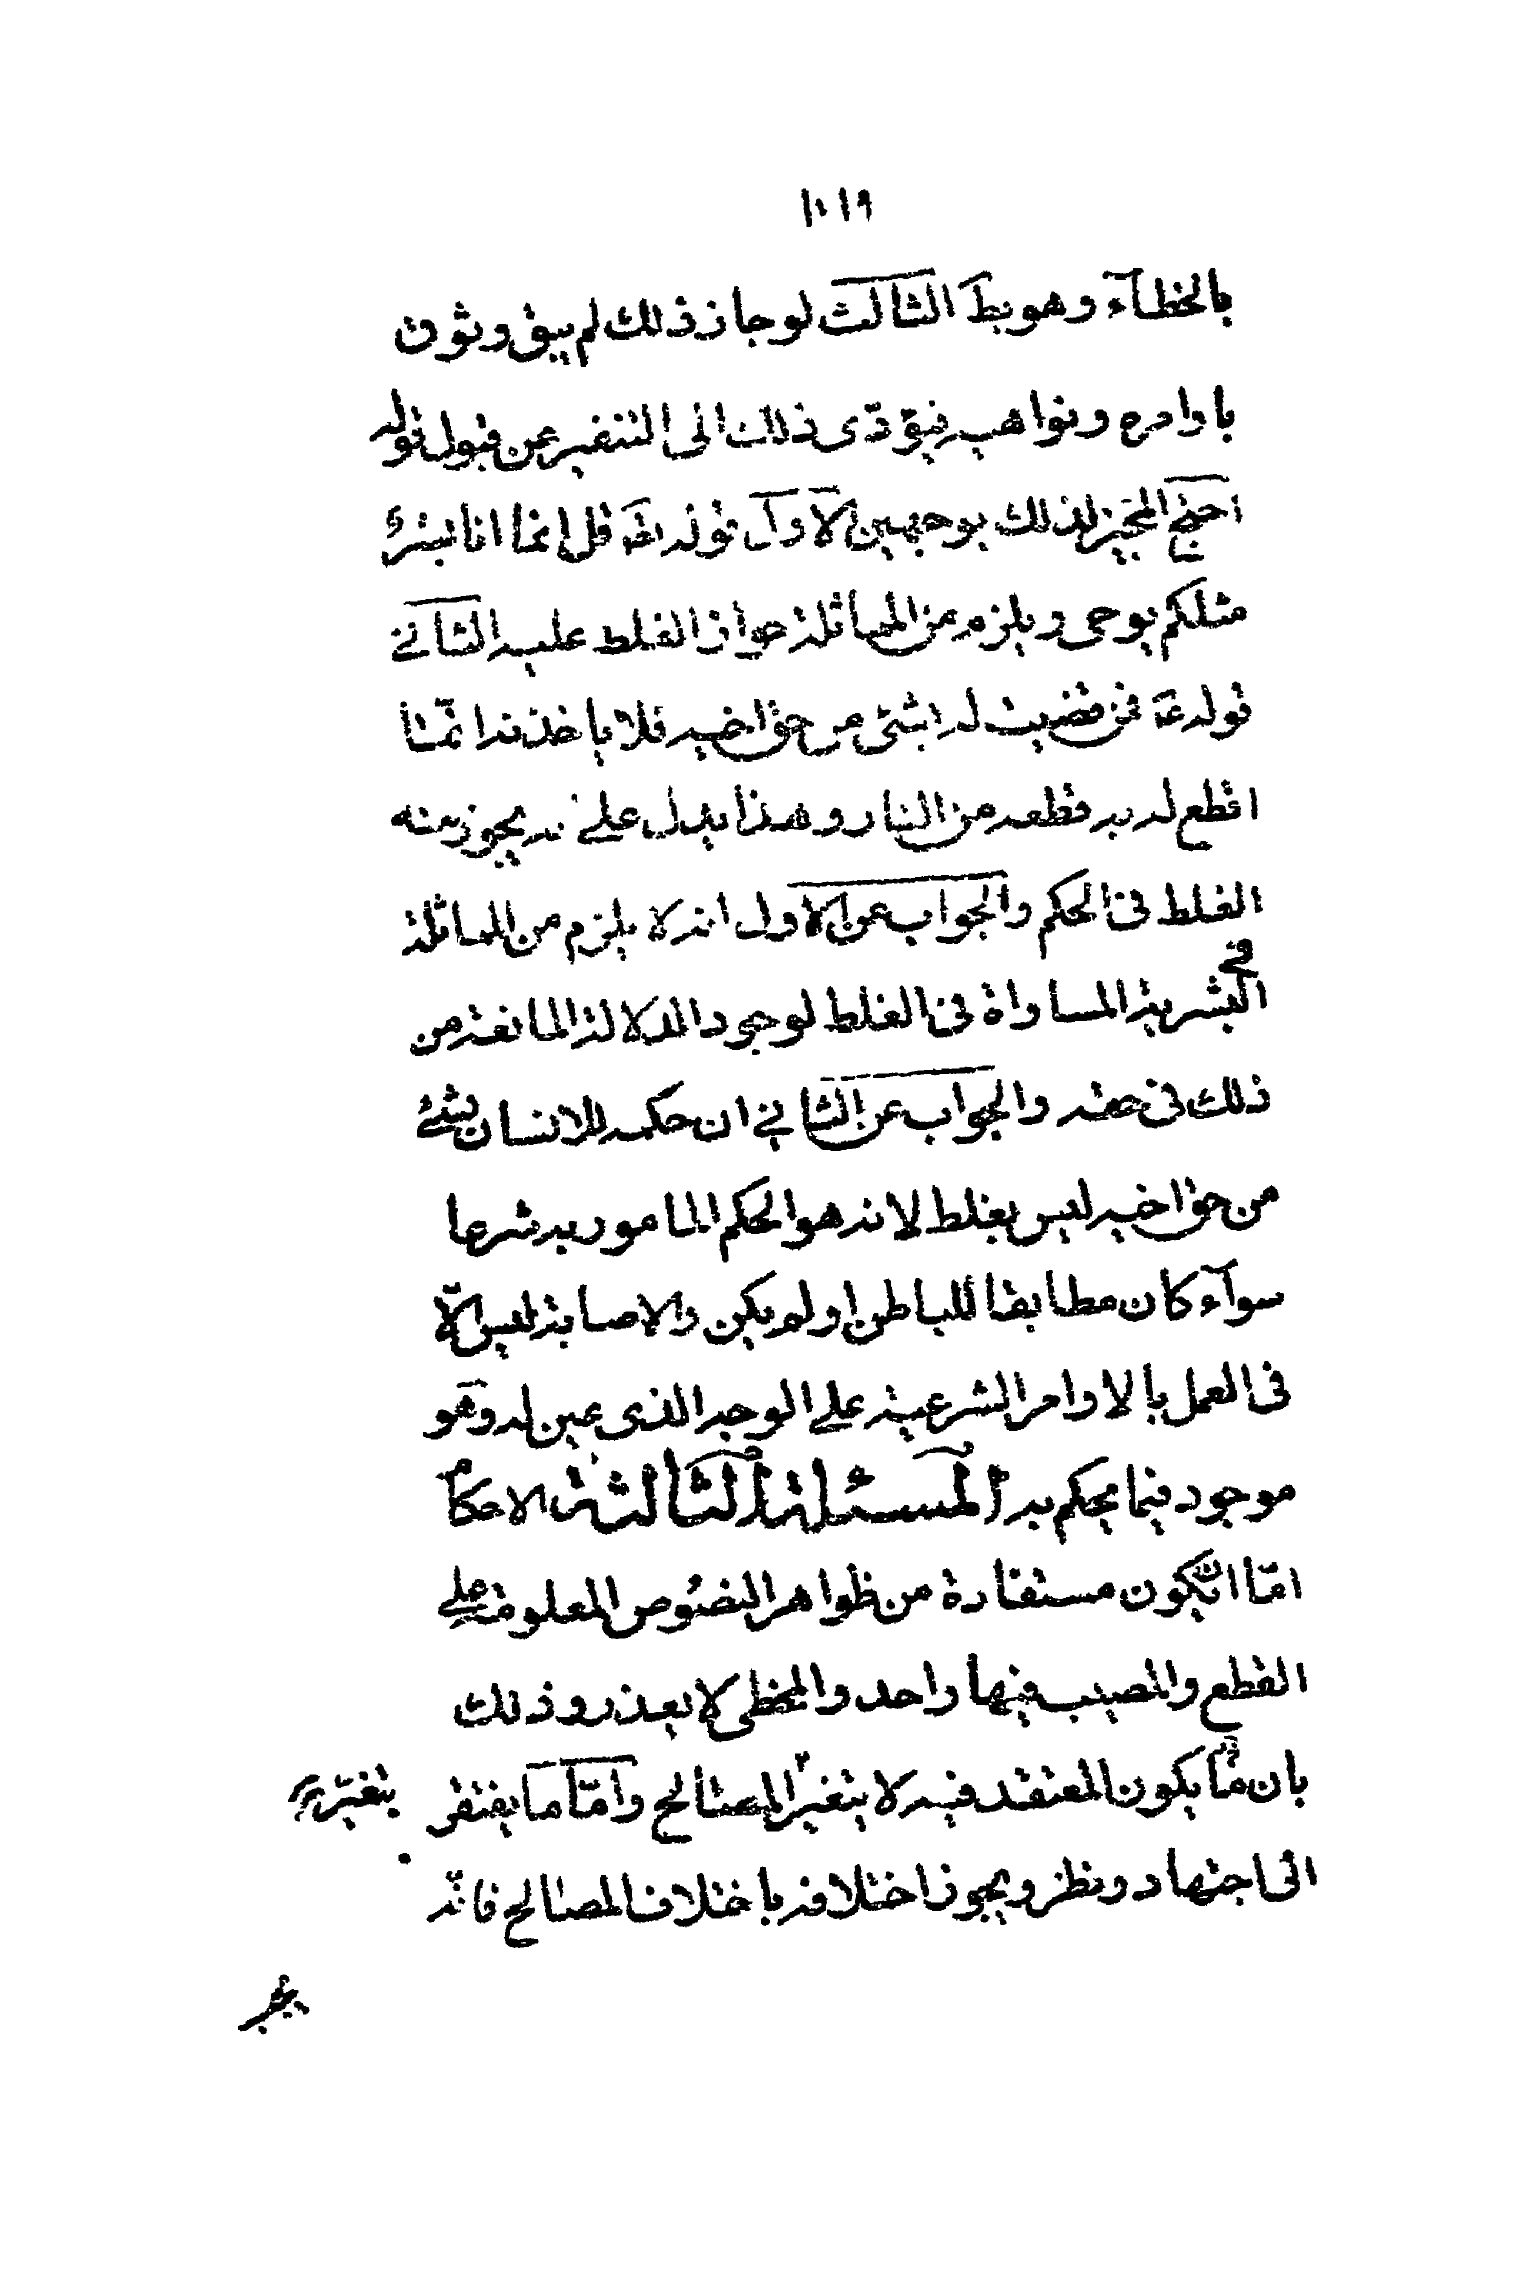 ١٠١٩
بالخطآء وهو بط الثالث لو جاز ذلك لم يبق وثوق
باوامره ونواهيه فيؤدّى ذلك الى التنفير عن قبول قوله
احتج المجيز لذلك بوجهين الاول قوله تعه قل إنما انا بشر
مثلكم يوحى ويلزم من المماثلة جواز الغلط عليه الثانى
قوله عه فمن قضيت له بشئ من حق اخيه فلا ياخذنه انمّا
اقطع له به قطعه من النار وهذا يدل على نه يجوز منه
الغلط فى الحكم والجواب عن الاول انه لا يلزم من المماثلة
فى
البشرية المساواة فى الغلط لوجود الدلالة المانعة من
ذلك فى حقه والجواب عن الثانى ان حكمه للانسان بشئ
من حق اخيه ليس بغلط لانه هو الحكم المامور به شرعا
سوآء كان مطابقا للباطن او لم يكن والاصابة ليس الاّ
فى العمل بالاوامر الشرعية على الوجه الذى عين له وهو
موجود فيما يحكم به المسئلة الثالثة الاحكام
امّا ان يكون مستفادة من ظواهر النصوص المعلومة على
القطع والمصيب فيها واحد والمخطى لا يعذر وذلك
بان ما يكون المعتقد فيه لا يتغير المصالح وامّا ما يفتقر
بتغيّر
الى اجتهاد ونظر ويجوز اختلافه باختلاف المصالح فانّه